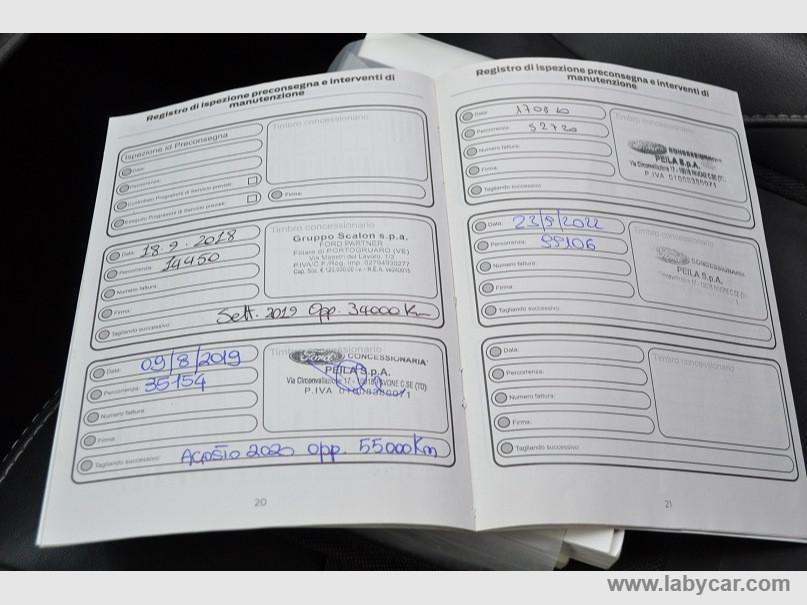 Registro di ispezione preconsegna e interventi di
manutenzione
Ispezione id Preconsegna
Data:
Percorrenza:
Controllati Programmi di Servizio previsti:
Eseguito Programmi di Servizio previsti:
Timbro concessionario
Firma:
Data: 18.9.2018
Percorrenza: 14450
Numero fattura:
Firma:
Tagliando successivo: Sett. 2019 opp. 34000 Km
Timbro concessionario
Gruppo Scalon s.p.a.
FORD PARTNER
Filiale di PORTOGRUARO (VE)
Via Maestri del Lavoro, 1/3
P.IVA/C.F./Reg. Imp. 02794930277
Cap. Soc. € 120.000,00 i.v. - R.E.A. Ve240015
Data: 09/8/2019
Percorrenza: 35154
Numero fattura:
Firma:
Tagliando successivo: AGOSTO 2020 opp. 55000 Km
Timbro concessionario
Ford CONCESSIONARIA
PEILA S.p.A.
Via Circonvallazione 17 - PAVONE C.SE (TO)
P.IVA
20
Registro di ispezione preconsegna e interventi di
manutenzione
Data: 170820
Percorrenza: 52720
Numero fattura:
Firma:
Tagliando successivo:
Timbro concessionario
Ford CONCESSIONARIA
PEILA S.p.A.
Via Circonvallazione 17 - 10018 PAVONE C.SE (TO)
P.IVA
Data: 23/5/2022
Percorrenza: 55106
Numero fattura:
Firma:
Tagliando successivo:
Timbro concessionario
Ford CONCESSIONARIA
PEILA S.p.A.
Data:
Percorrenza:
Numero fattura:
Firma:
Tagliando successivo:
Timbro concessionario
21
www.labycar.com